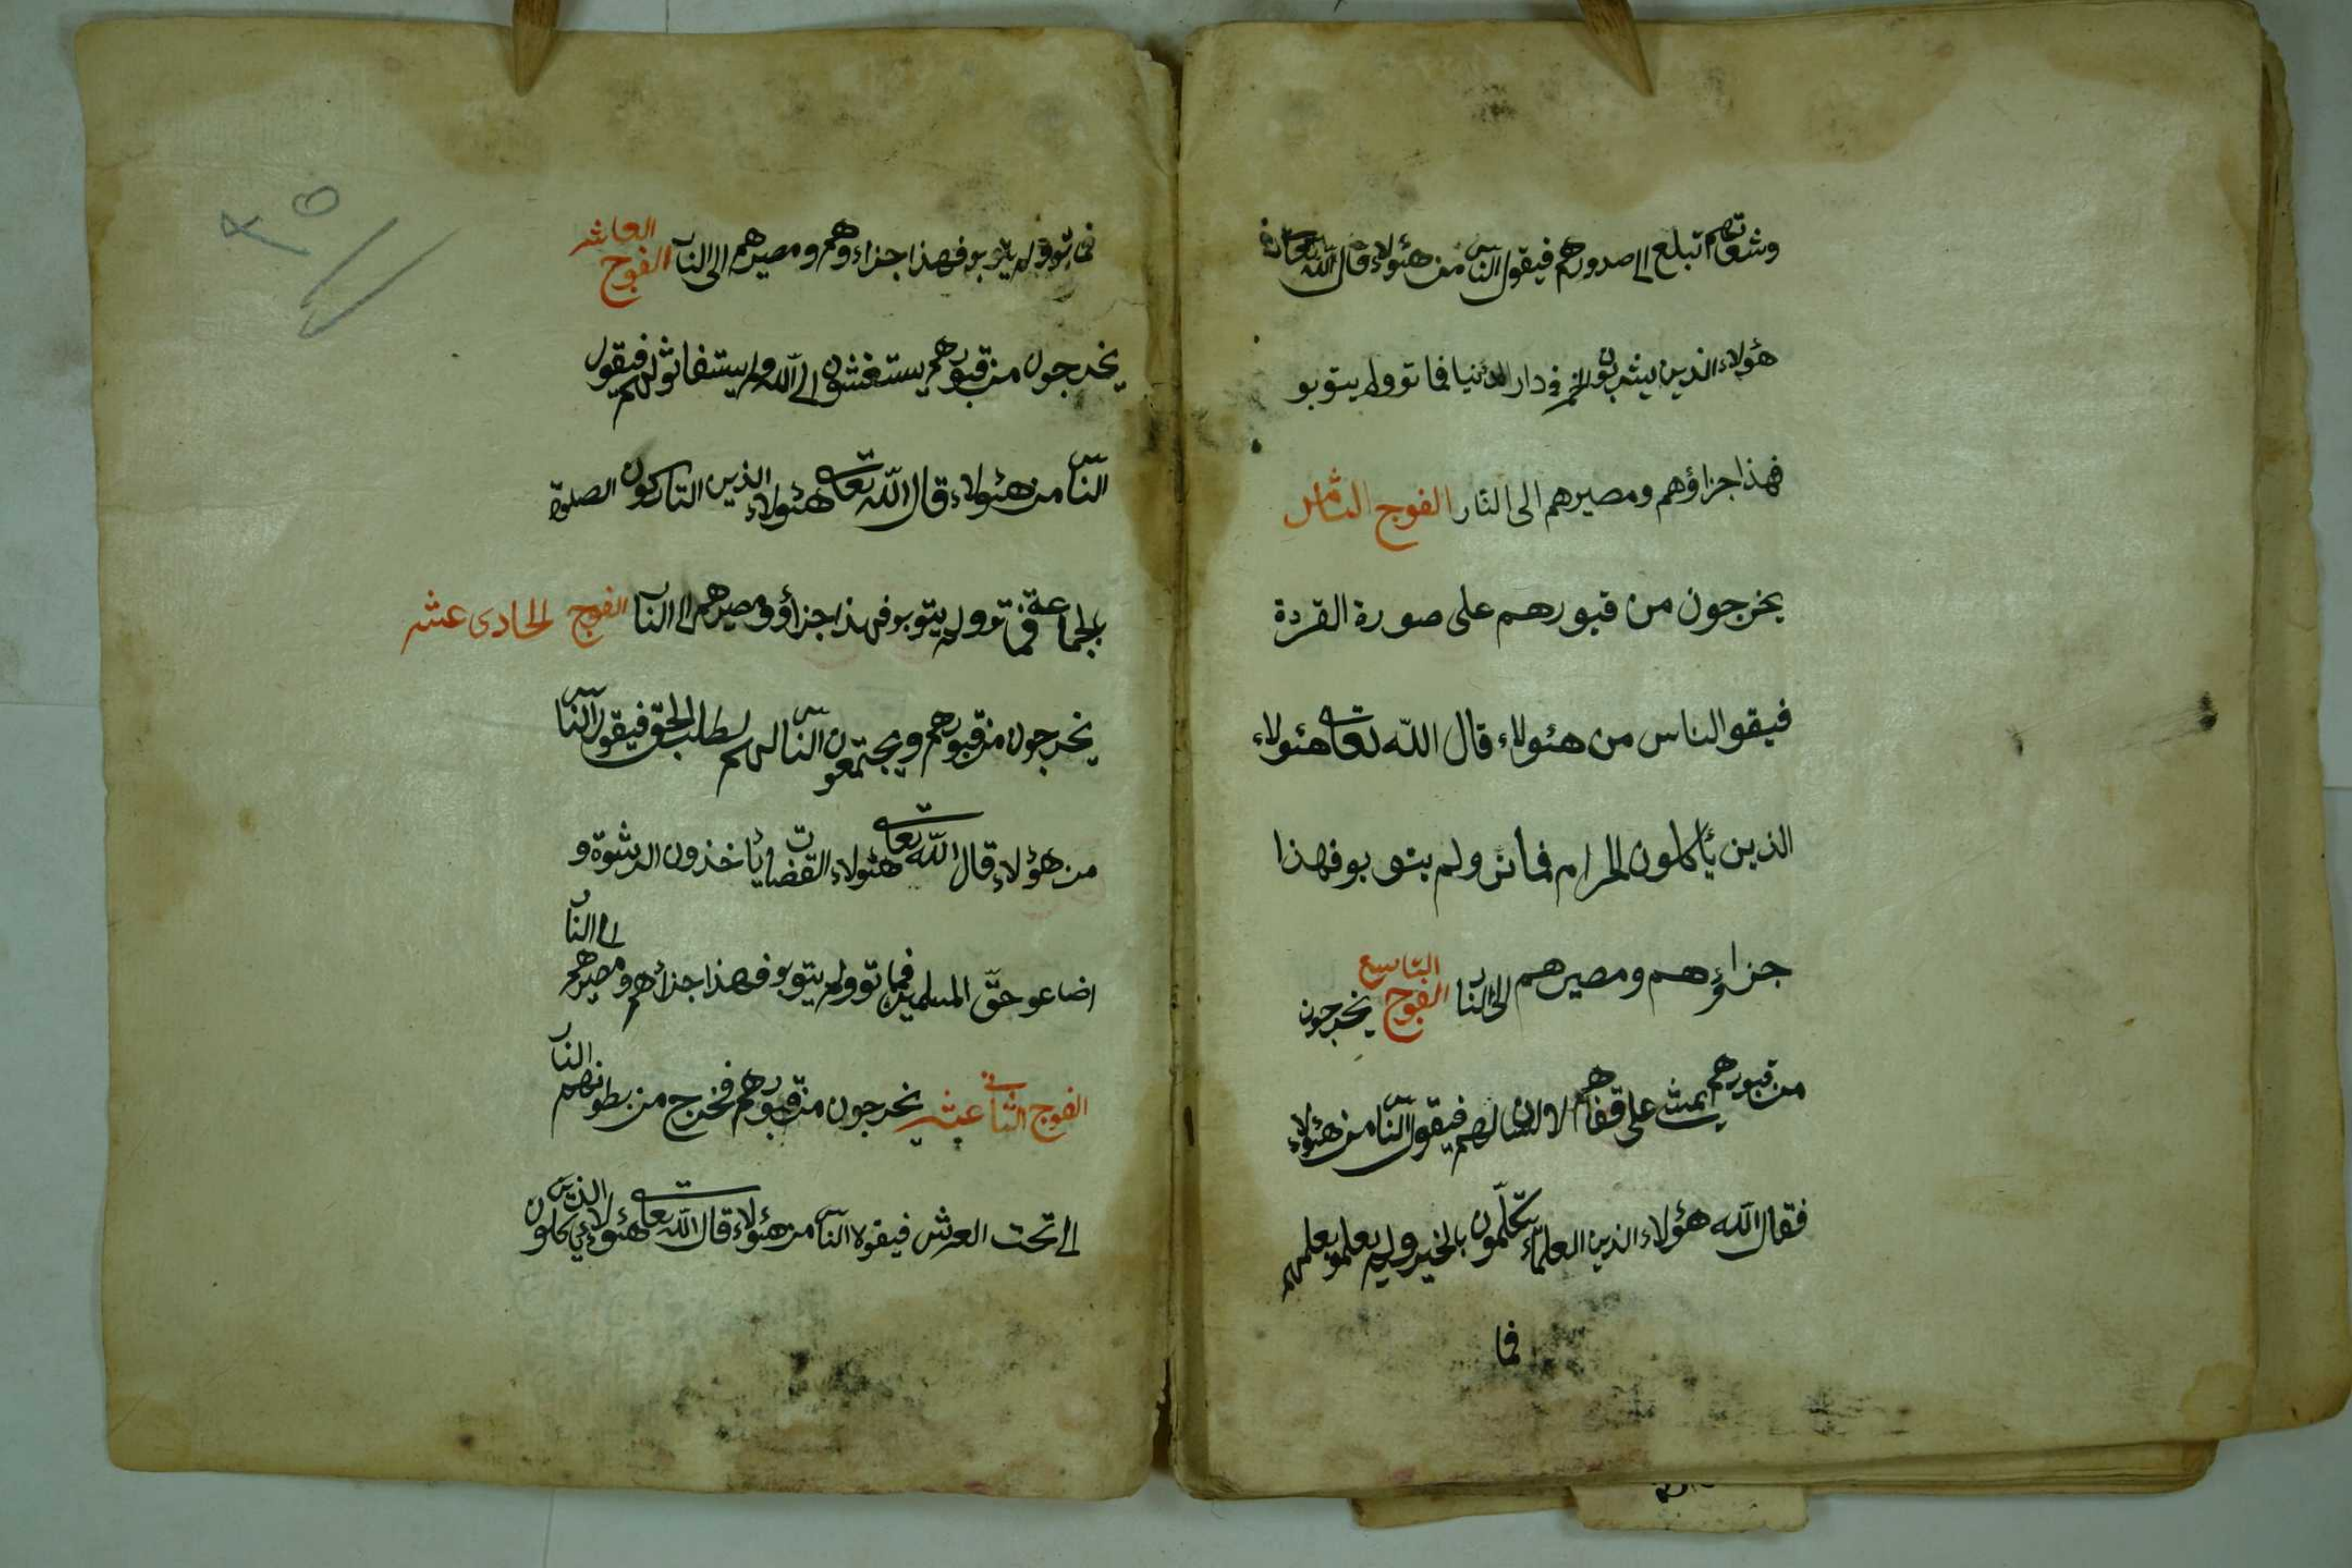 وشفتهم تبلع الى صدورهم فيقول الناس من هئولاء قال الله تعالى
هؤلاء الذين يشربون الخمر فى دار الدنيا فماتو ولم يتوبو
فهذا جزاؤهم ومصيرهم الى النار الفوج الثامن
يخرجون من قبورهم على صورة القردة
فيقو الناس من هئولاء قال الله تعالى هئولاء
الذين يأكلون الحرام فماتو ولم يتوبو فهذا
جزاؤهم ومصيرهم الى النار الفوج التاسع يخرجون
من قبورهم يمشى على قفاهم لا لسان لهم فيقول الناس من هئولاء
فقال الله هؤلاء الذين العلماء يتكلمون بالخير ولم يعلمو بعلمهم
فما
فماتو ولم يتوبو فهذا جزاءوهم ومصيرهم الى النار الفوج العاشر
يخرجون من قبورهم يستغثون الى الله ولم يستغاثو لهم فيقول
الناس من هئولاء قال الله تعالى هئولاء الذين التاركون الصلوة
بالجماعة فماتو ولم يتوبو فهذا جزاؤ ومصيرهم الى النار الفوج الحادى عشر
يخرجون من قبورهم ويجتمعون الناس لهم لطلب الحق فيقول الناس
من هؤلاء قال الله تعالى هئولاء القضات يأخذون الرشوة و
اضاعو حق المسلمين فماتو ولم يتوبو فهذا جزائهم ومصيرهم الى النار
الفوج الثانى عشر يخرجون من قبورهم فخرج من بطونهم النار
الى تحت العرش فيقولا الناس من هئولاء قال الله تعالى هئولاء الذين يأكلون